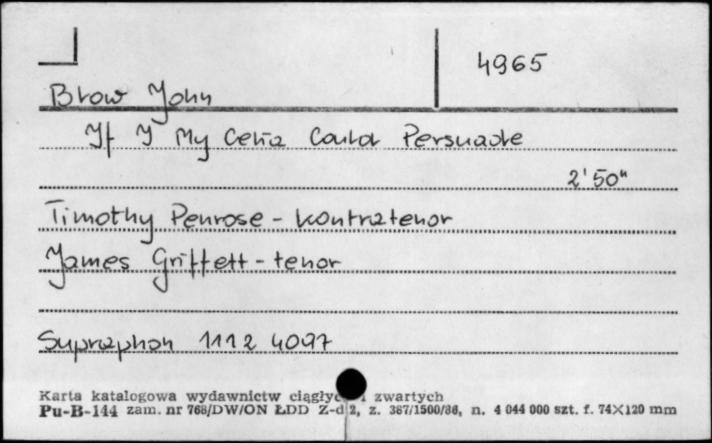 4965
Blow John
If I My Celia Could Persuade
2'50"
Timothy Penrose - kontratenor
James Griffett - tenor
Supraphon 1112 4097
Karta katalogowa wydawnictw ciągłyc i zwartych
Pu-B-144 zam. nr 768/DW/ON ŁDD Z-d 2, z. 387/1500/86, n. 4 044 000 szt. f. 74X120 mm